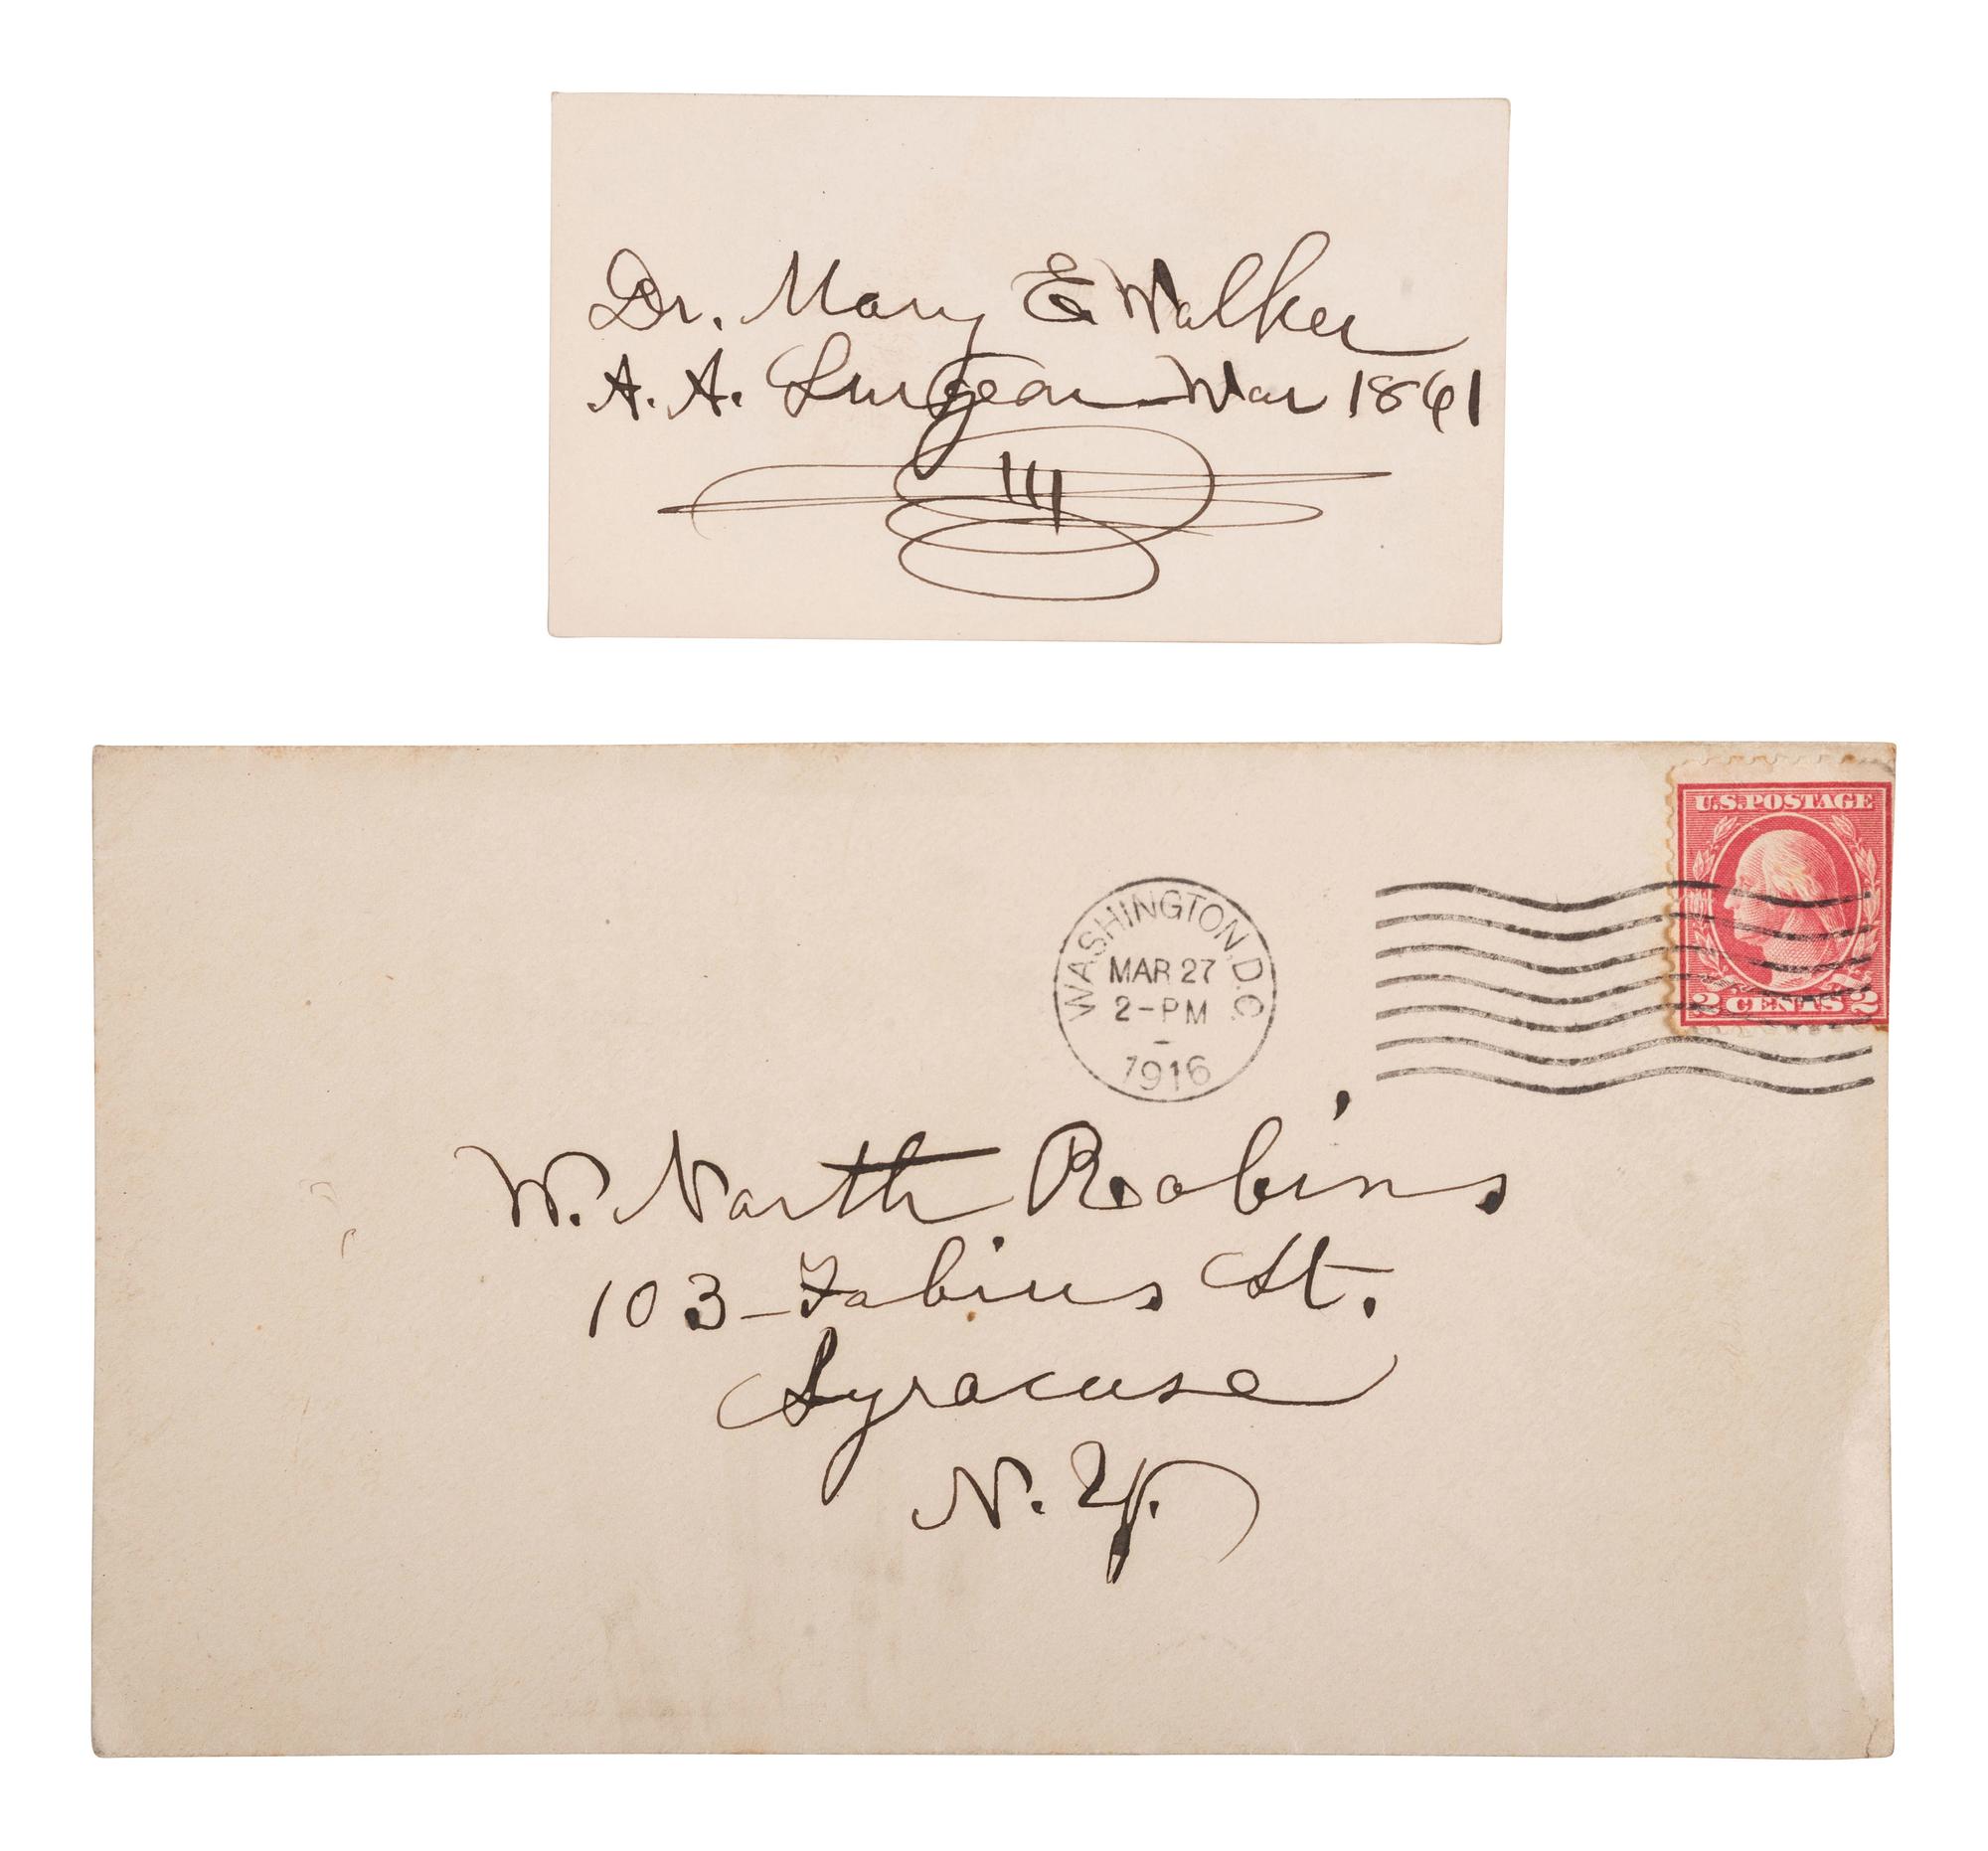 Dr. Mary E Walker
A. A. Surgeon - War 1861
U.S. POSTAGE
2 CENTS 2
WASHINGTON, D.C.
MAR 27
2-PM
1916
W. North Robins
103 - Fabius St.
Syracuse
N. Y.